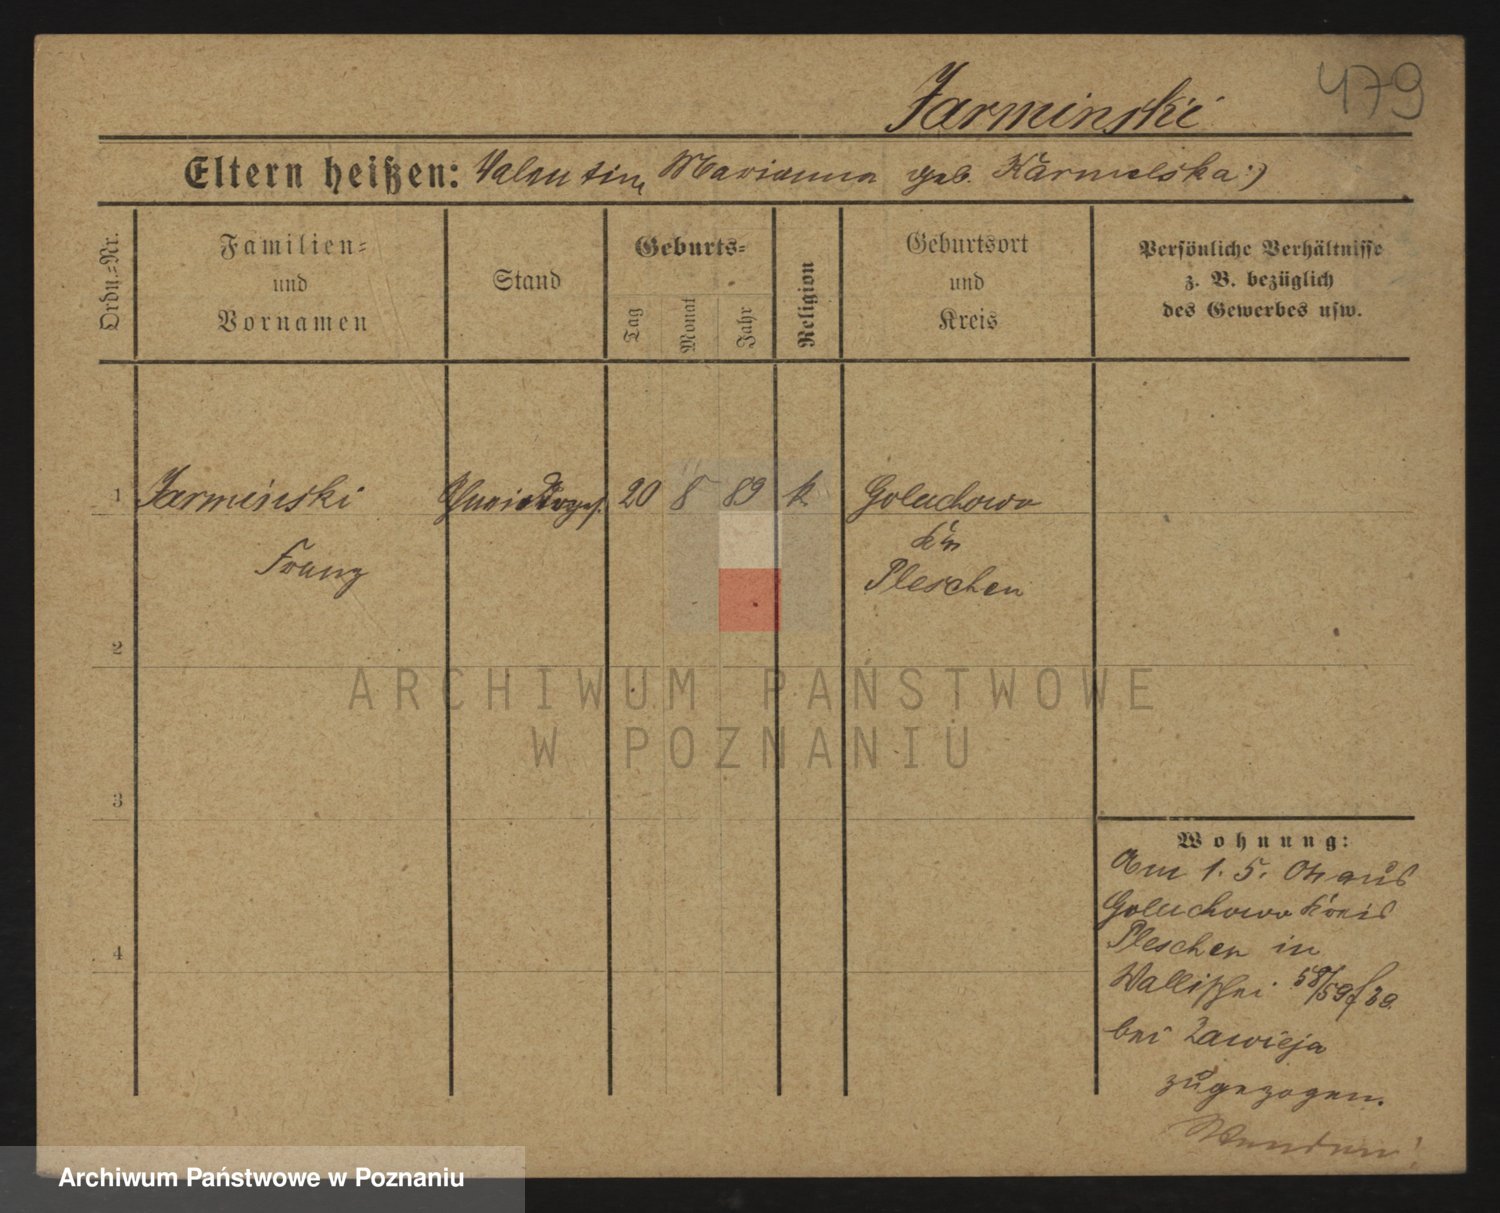 479
Jarminski
Eltern heißen: Valentin, Marianna geb. Karmelska :)
Ordn.=Nr.
Familien=
und
Vornamen
Stand
Geburts=
Tag
Monat
Jahr
Religion
Geburtsort
und
Kreis
Persönliche Verhältnisse
z. B. bezüglich
des Gewerbes usw.
1 Jarminski 20 8 89 k Goluchowo
Franz Pleschen
2
ARCHIWUM PAŃSTWOWE
W POZNANIU
3
Wohnung:
Am 1. 5. 04 aus
Goluchowo Kreis
4
Pleschen in
Wallischei 58/59
bei Zawieja
zugezogen.
Wenden!
Archiwum Państwowe w Poznaniu